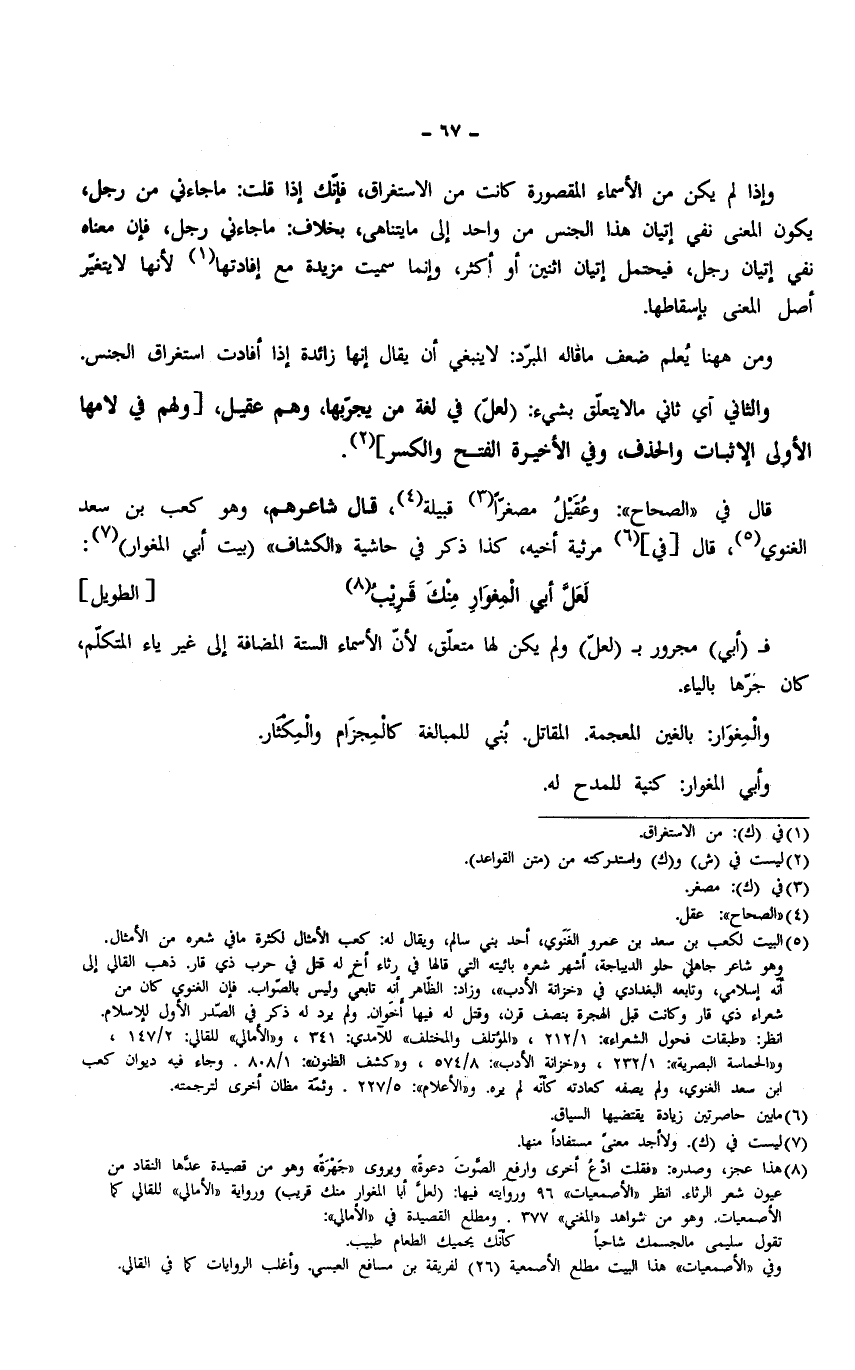 - ٦٧ -
وإذا لم يكن من الأسماء المقصورة كانت من الاستغراق، فإنّك إذا قلت: ماجاءني من رجل،
يكون المعنى نفي إتيان هذا الجنس من واحد إلى مايتناهى، بخلاف: ماجاءني رجل، فإن معناه
نفي إتيان رجل، فيحتمل إتيان اثنين أو أكثر، وإنما سميت مزيدة مع إفادتها(١) لأنها لايتغيّر
أصل المعنى بإسقاطها.
ومن ههنا يُعلم ضعف ماقاله المبرّد: لاينبغي أن يقال إنها زائدة إذا أفادت استغراق الجنس.
والثاني أي ثاني مالايتعلّق بشيء: (لعلّ) في لغة من يجرّبها، وهم عقيل، [ولهم في لامها
الأولى الإثبات والحذف، وفي الأخيرة الفتح والكسر](٢).
قال في «الصحاح»: وعُقَيْلُ مصغراً(٣) قبيلة(٤)، قال شاعرهم، وهو كعب بن سعد
الغنوي(٥)، قال [في](٦) مرثية أخيه، كذا ذكر في حاشية «الكشاف» (بيت أبي المغوار)(٧):
لَعَلَّ أبي الْمِغوَارِ مِنْكَ قَرِيْبُ(٨) [الطويل]
فـ (أبي) مجرور بـ (لعلّ) ولم يكن لها متعلّق، لأنّ الأسماء الستة المضافة إلى غير ياء المتكلّم،
كان جَرّها بالياء.
والْمِغوَار: بالغين المعجمة. المقاتل. بُني للمبالغة كالْمِجزَام والْمِكْثَار.
وأبي المغوار: كنية للمدح له.
(١) في (ك): من الاستغراق.
(٢) ليست في (ش) و(ك) واستدركته من (متن القواعد).
(٣) في (ك): مصغر.
(٤) «الصحاح»: عقل.
(٥) البيت لكعب بن سعد بن عمرو الغَنَوي، أحد بني سالم، ويقال له: كعب الأمثال لكثرة مافي شعره من الأمثال.
وهو شاعر جاهلي حلو الديباجة، أشهر شعره بائيته التي قالها في رثاء أخ له قتل في حرب ذي قار. ذهب القالي إلى
أنّه إسلامي، وتابعه البغدادي في «خزانة الأدب»، وزاد: الظّاهر أنه تابعيّ وليس بالصّواب. فإن الغنوي كان من
شعراء ذي قار وكانت قبل الهجرة بنصف قرن، وقتل له فيها أَخَوان. ولم يرد له ذكر في الصّدر الأول للإسلام.
انظر: «طبقات فحول الشعراء»: ٢١٢/١ ، «المؤتلف والمختلف» للآمدي: ٣٤١ ، و«الأمالي» للقالي: ١٤٧/٢ ،
و«الحماسة البصرية»: ٢٣٢/١ ، و«خزانة الأدب»: ٥٧٤/٨ ، و«كشف الظنون»: ٨٠٨/١ . وجاء فيه ديوان كعب
ابن سعد الغنوي، ولم يصفه كعادته كأنّه لم يره. و«الأعلام»: ٢٢٧/٥ . وثمّة مظان أخرى لترجمته.
(٦) مابين حاصرتين زيادة يقتضيها السياق.
(٧) ليست في (ك). ولاأجد معنىً مستفاداً منها.
(٨) هذا عجز، وصدره: «فقلت ادْعُ أخرى وارفع الصَّوتَ دعوةً» ويروى «جَهْرَةً» وهو من قصيدة عدّها النقاد من
عيون شعر الرثاء. انظر «الأصمعيات» ٩٦ وروايته فيها: (لعلَّ أبا المغوار منك قريب) ورواية «الأمالي» للقالي كما
الأصمعيات. وهو من شواهد «المغني» ٣٧٧ . ومطلع القصيدة في «الأمالي»:
تقول سليمى مالجسمك شاحباً كأنّك يحميك الطعام طبيب.
وفي «الأصمعيات» هذا البيت مطلع الأصمعية (٢٦) لغريقة بن مسافع العبسي. وأغلب الروايات كما في القالي.